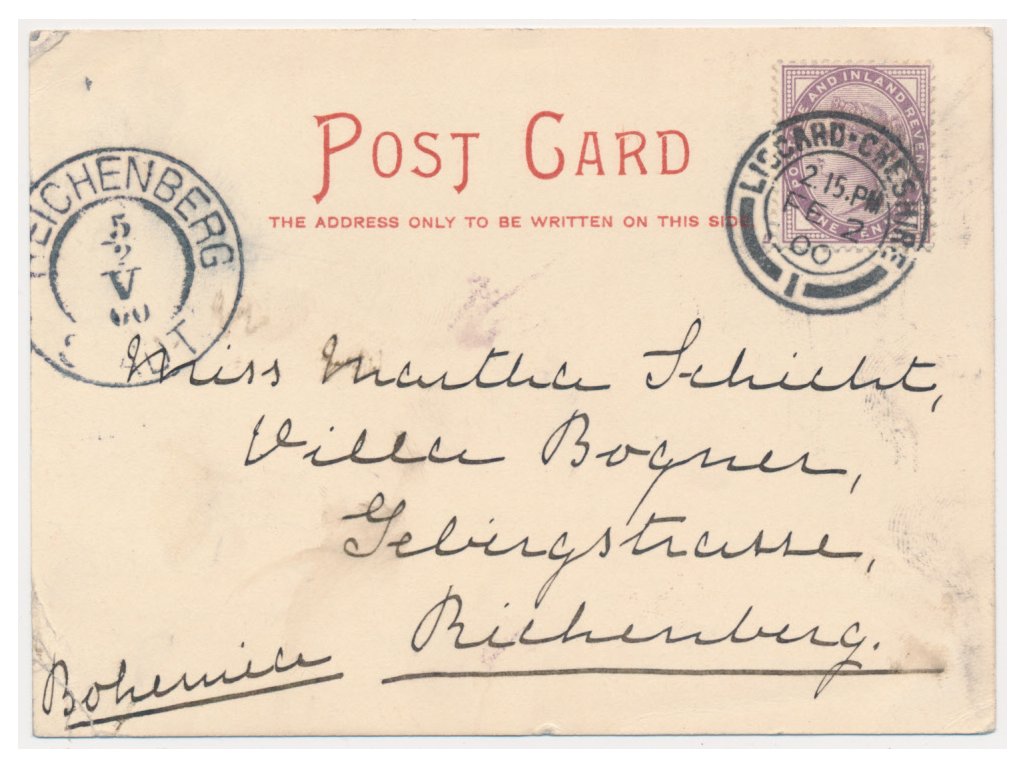 POST CARD
THE ADDRESS ONLY TO BE WRITTEN ON THIS SIDE
POSTAGE AND INLAND REVENUE
ONE PENNY
LISCARD·CHESHIRE
2.15.PM
FE 2
00
1
REICHENBERG
5
2
V
00
STADT
Miss Martha Schicht,
Villa Bogner,
Gebirgstrasse,
Richenberg.
Bohemia